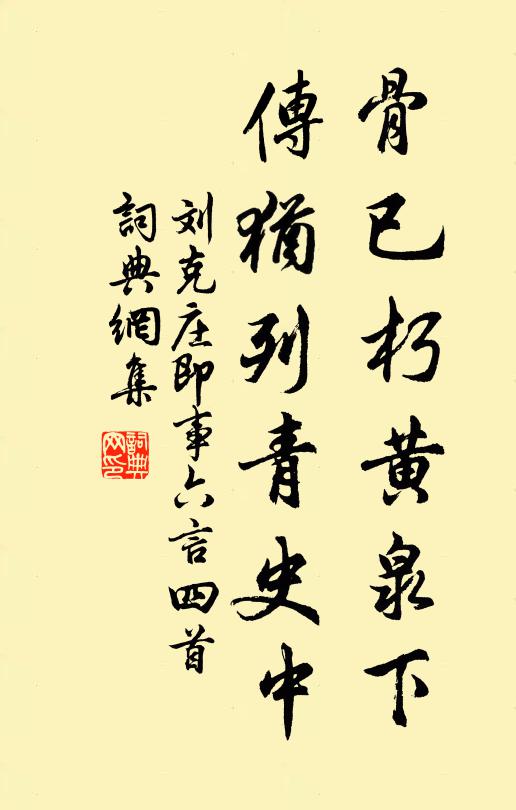 骨已朽黄泉下
傳猶列青史中
刘克庄即事六言四首
詞典網集
詞典
网印